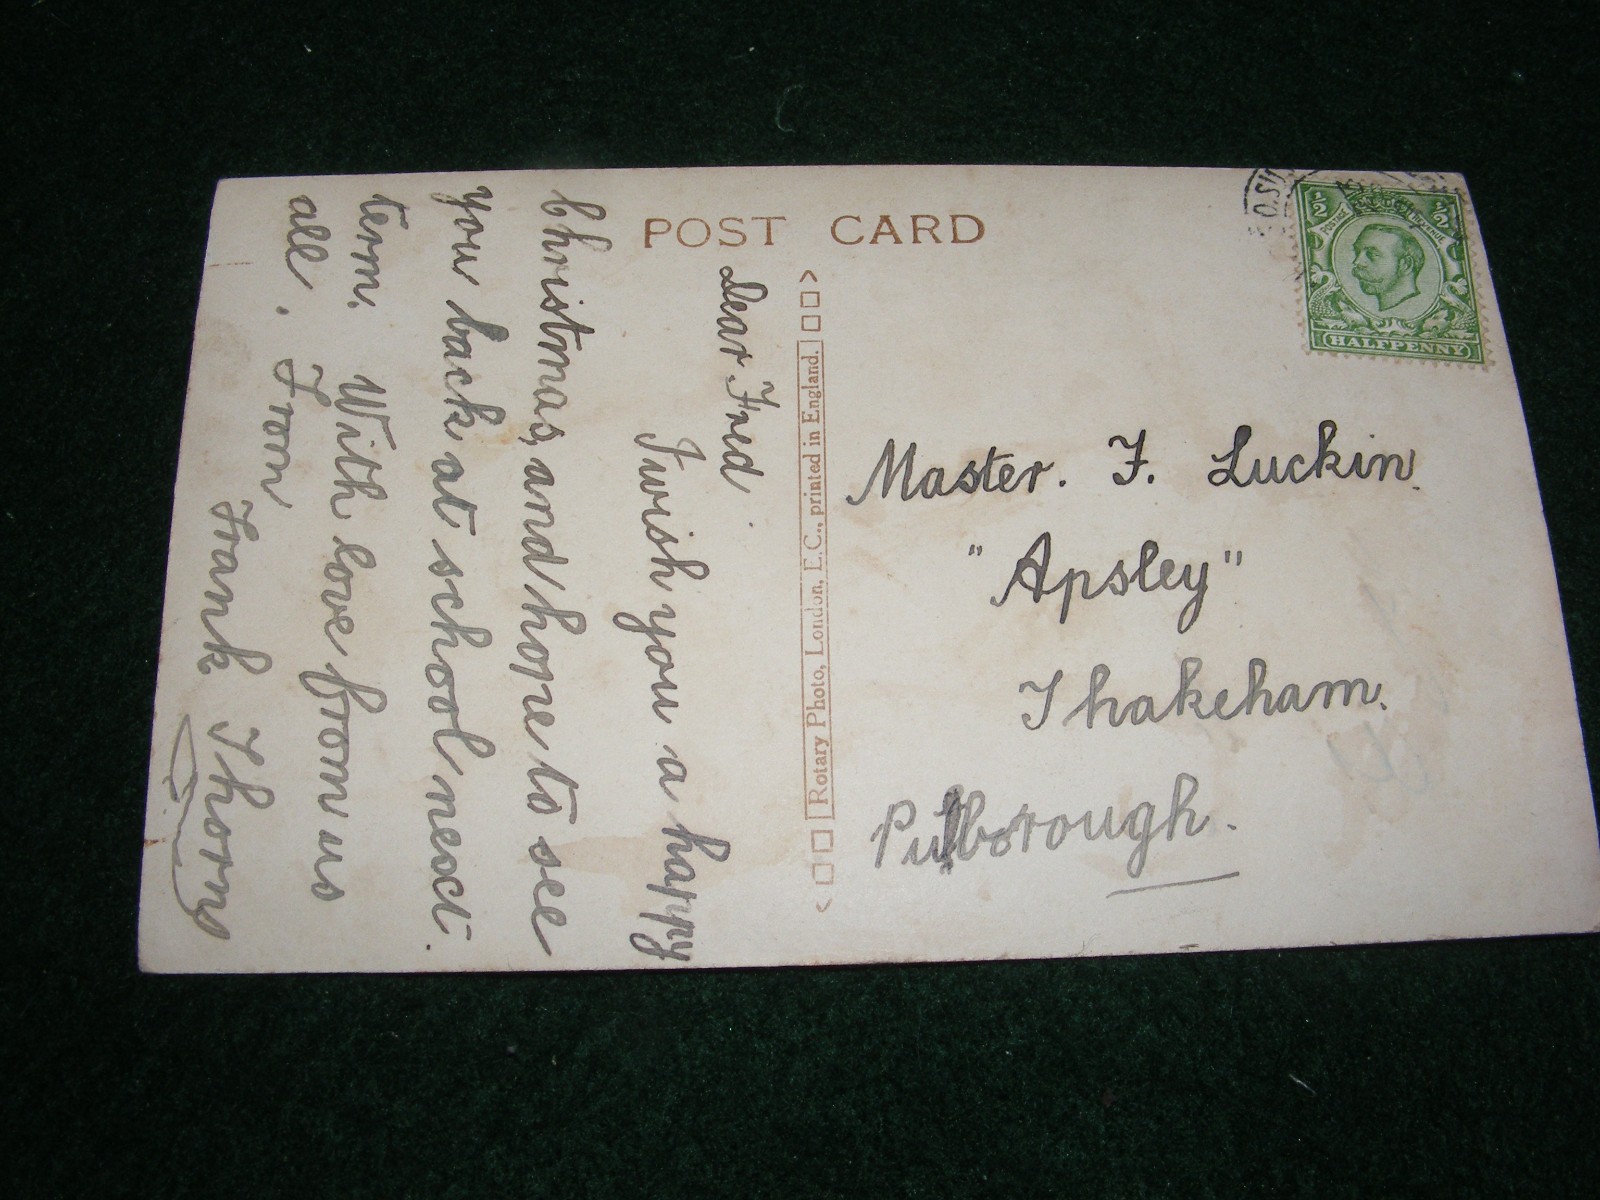 POST CARD
Dear Fred
I wish you a happy
Christmas, and hope to see
you back at school next
term. With love from us
all. From
Frank Thorns
Rotary Photo, London, E.C., printed in England.
½ ½
POSTAGE
HALFPENNY
Master. F. Luckin.
"Apsley"
Thakeham.
Pulborough.